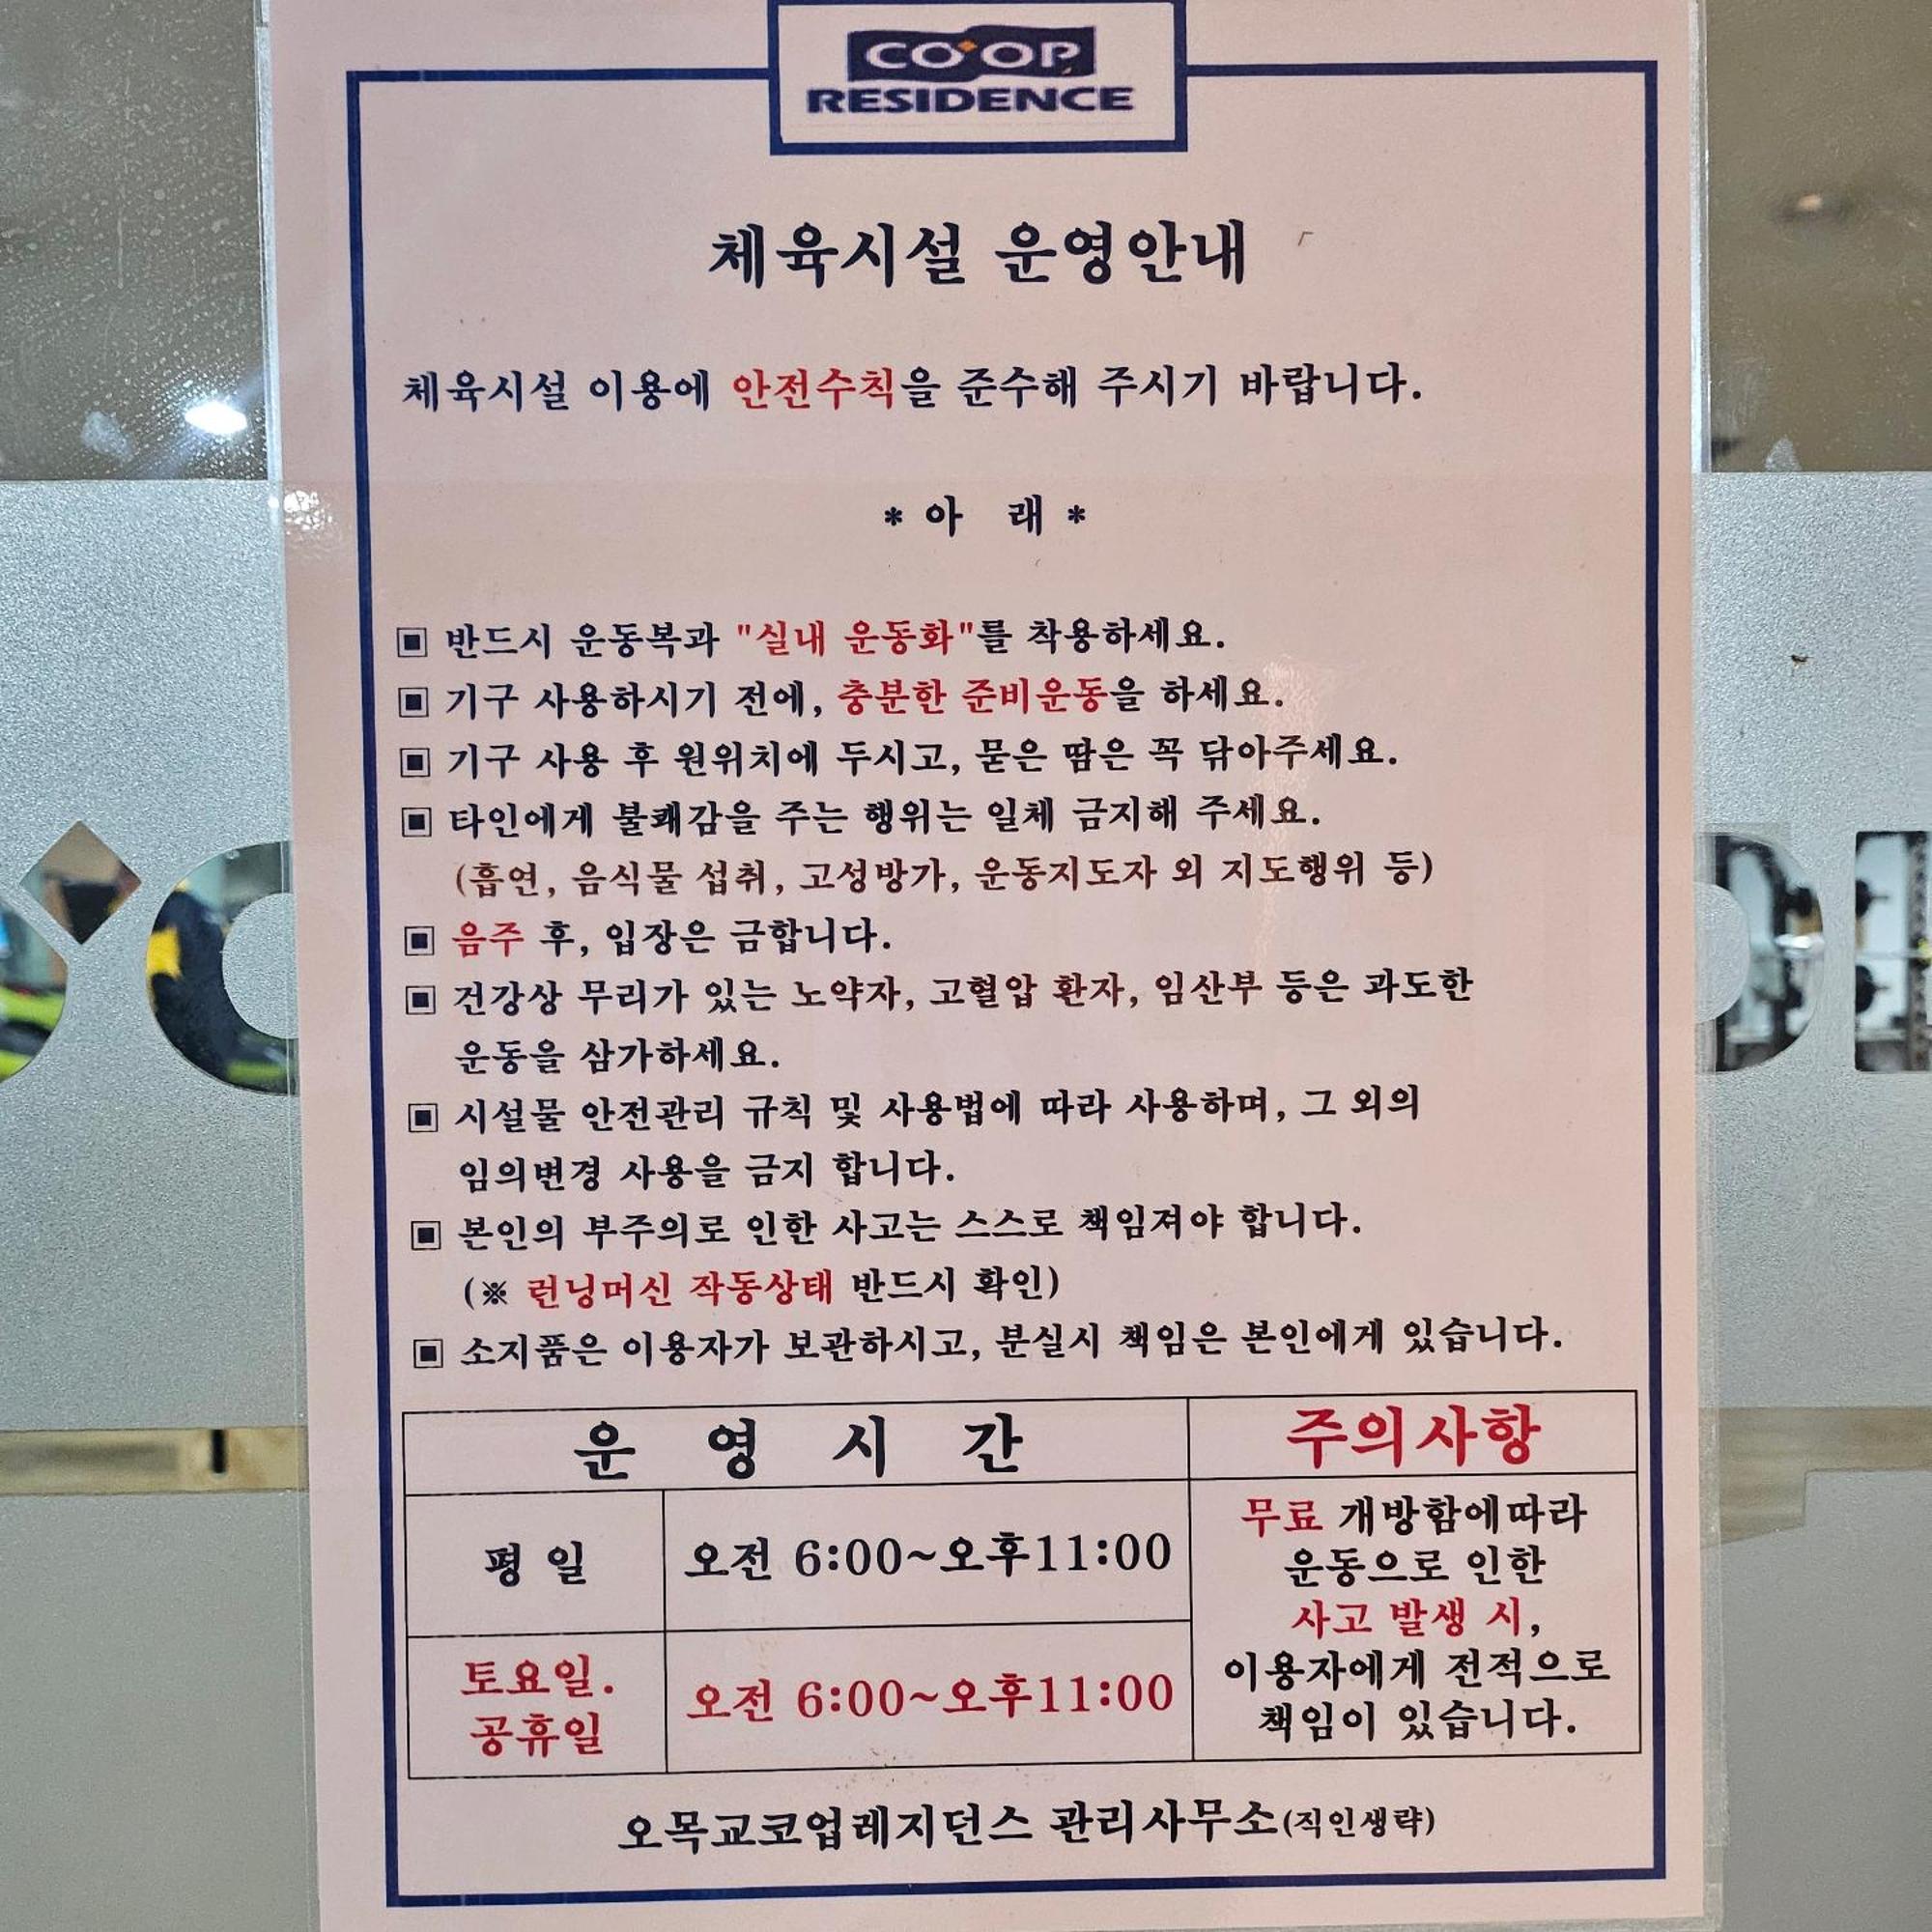 CO·OP
RESIDENCE
체육시설 운영안내
체육시설 이용에 안전수칙을 준수해 주시기 바랍니다.
* 아 래 *
▣ 반드시 운동복과 "실내 운동화"를 착용하세요.
▣ 기구 사용하시기 전에, 충분한 준비운동을 하세요.
▣ 기구 사용 후 원위치에 두시고, 묻은 땀은 꼭 닦아주세요.
▣ 타인에게 불쾌감을 주는 행위는 일체 금지해 주세요.
(흡연, 음식물 섭취, 고성방가, 운동지도자 외 지도행위 등)
▣ 음주 후, 입장은 금합니다.
▣ 건강상 무리가 있는 노약자, 고혈압 환자, 임산부 등은 과도한
운동을 삼가하세요.
▣ 시설물 안전관리 규칙 및 사용법에 따라 사용하며, 그 외의
임의변경 사용을 금지 합니다.
▣ 본인의 부주의로 인한 사고는 스스로 책임져야 합니다.
(※ 런닝머신 작동상태 반드시 확인)
▣ 소지품은 이용자가 보관하시고, 분실시 책임은 본인에게 있습니다.
운 영 시 간
주의사항
평 일
오전 6:00~오후11:00
토요일.
공휴일
오전 6:00~오후11:00
무료 개방함에따라
운동으로 인한
사고 발생 시,
이용자에게 전적으로
책임이 있습니다.
오목교코업레지던스 관리사무소(직인생략)